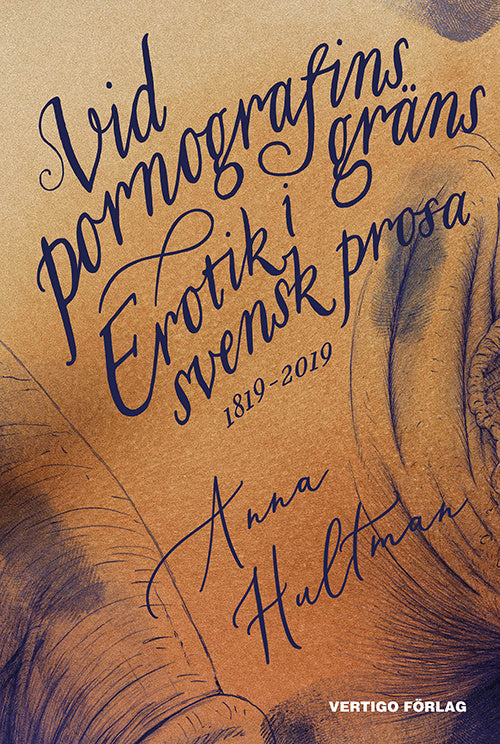 Vid
pornografins
gräns
Erotik i
svensk prosa
1819–2019
Anna
Hultman
VERTIGO FÖRLAG